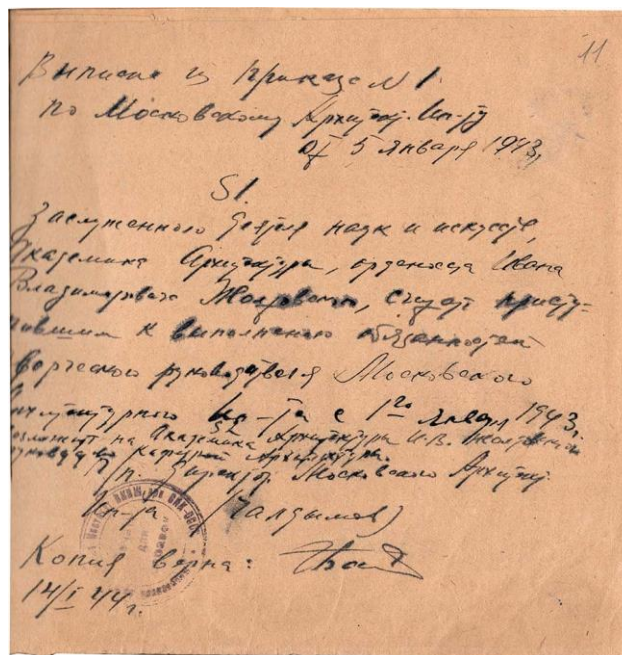 11
Выписка из приказа N 1.
по Московскому Архитект. Ин-ту
от 5 января 1943г.
§1.
Заслуженного деятеля наук и искусств,
Академика Архитектуры, орденосца Ивана
Владимировича Жолтовского, считать присту-
пившим к выполнению обязанностей
творческого руководителя Московского
Архитектурного Ин-та с 1го января 1943г.
Возложить на Академика Архитектуры И.В. Жолтовского
руковод-во кафедрой Архитектуры.
п. Директор Московского Архитект.
Ин-та
Копия верна:
14/I 44г.